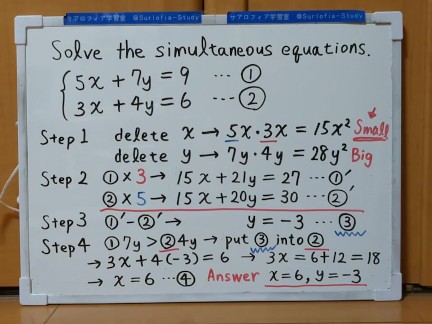 サアロフィア学習室 @Surlofia-Study サアロフィア学習室 @Surlofia-Study
Solve the simultaneous equations.
5x + 7y = 9 … ①
3x + 4y = 6 … ②
Step 1 delete x → 5x・3x = 15x² Small
delete y → 7y・4y = 28y² Big
Step 2 ①×3 → 15x + 21y = 27 … ①'
②×5 → 15x + 20y = 30 … ②'
Step 3 ①'-②' → y = -3 … ③
Step 4 ①7y > ②4y → put ③ into ②
→ 3x + 4(-3) = 6 → 3x = 6+12 = 18
→ x = 6 … ④ Answer x=6, y=-3